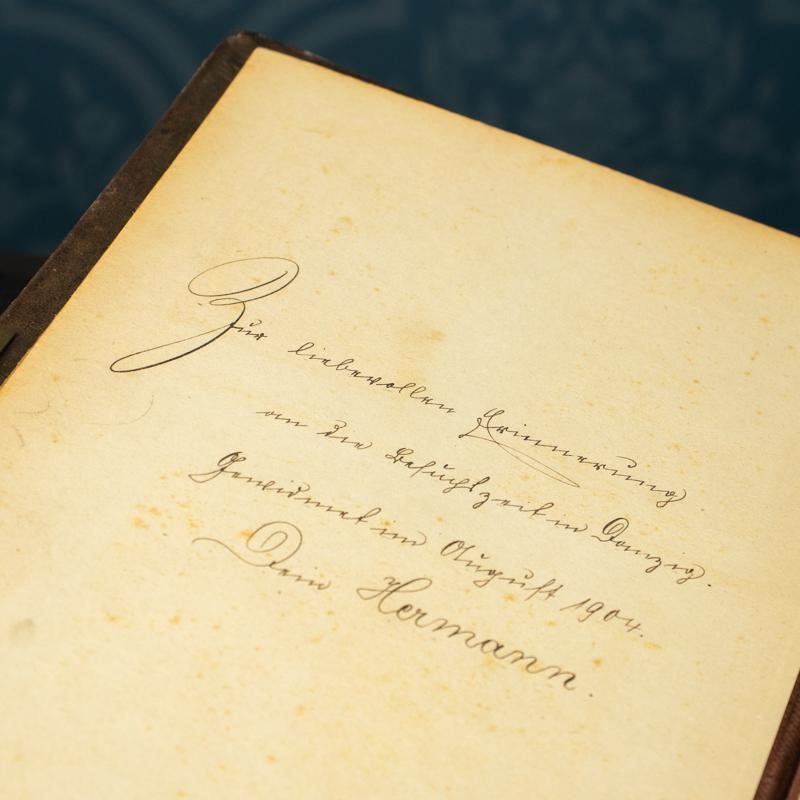 Zur liebevollen Erinnerung
an die Besuchszeit in Danzig.
Gewidmet im August 1904.
Dein Hermann.